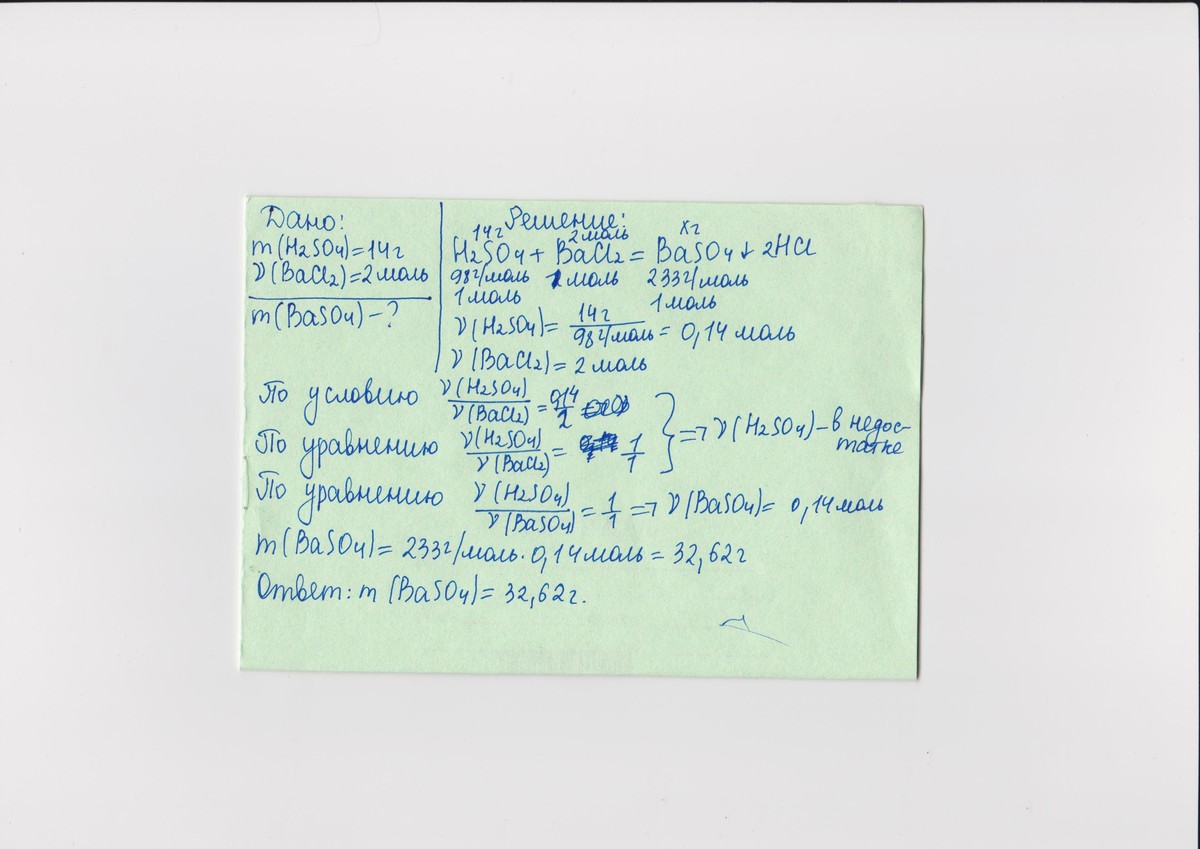 Дано:
m(H2SO4)=14г
ν(BaCl2)=2моль
m(BaSO4)-?
Решение:
14г 2моль xг
H2SO4+BaCl2=BaSO4↓+2HCl
98г/моль 1моль 233г/моль
1моль 1моль
ν(H2SO4)=14г/98г/моль=0,14моль
ν(BaCl2)=2моль
По условию ν(H2SO4)/ν(BaCl2)=0,14/2
По уравнению ν(H2SO4)/ν(BaCl2)=1/1
} => ν(H2SO4)-в недос-
татке
По уравнению ν(H2SO4)/ν(BaSO4)=1/1 => ν(BaSO4)= 0,14моль
m(BaSO4)=233г/моль·0,14моль=32,62г
Ответ: m(BaSO4)=32,62г.